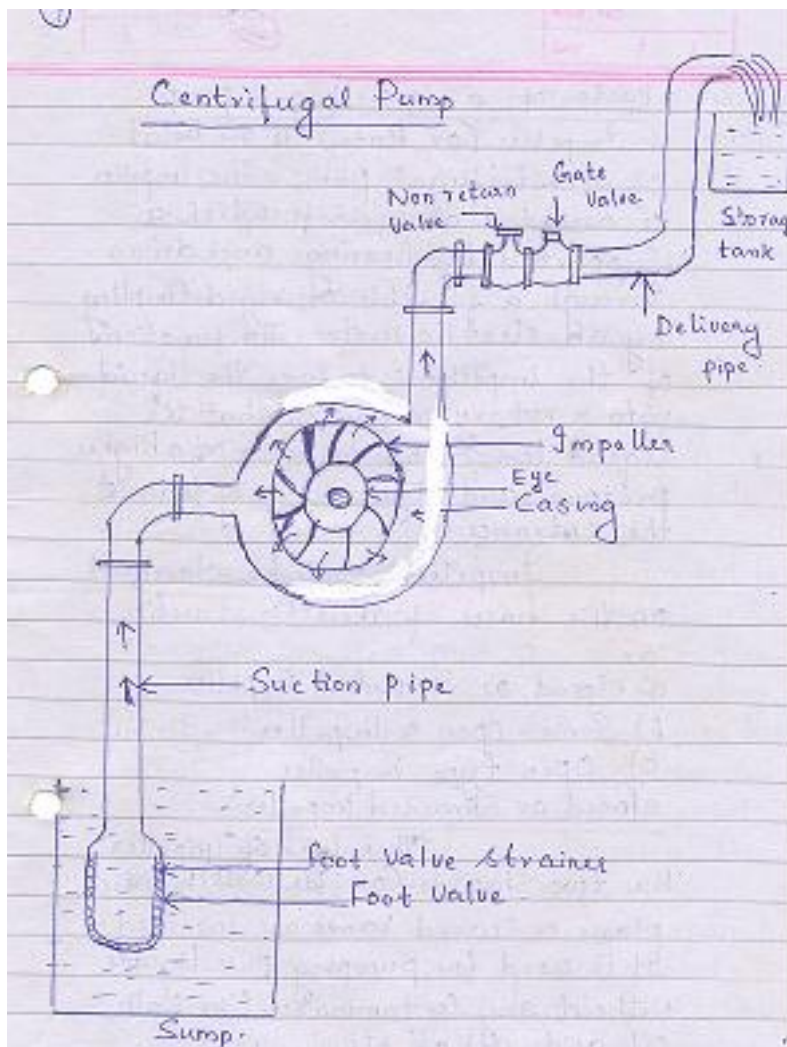 Centrifugal Pump
Non return
valve
Gate
Valve
Storag
tank
Delivery
pipe
Impeller
Eye
Casing
Suction pipe
foot valve strainer
Foot valve
Sump.